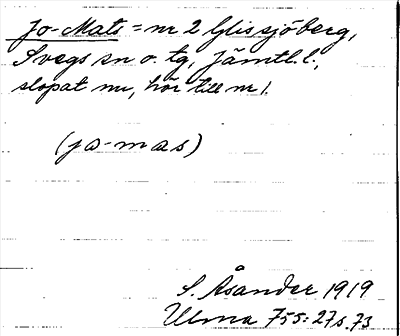 Jo-Mats = nr 2 Glissjöberg,
Svegs sn o. tg, Jämtl. l.,
slopat nu, hör till nr 1.
(jo-mas)
S. Åsander 1919
Ulma 755:27 s. 73